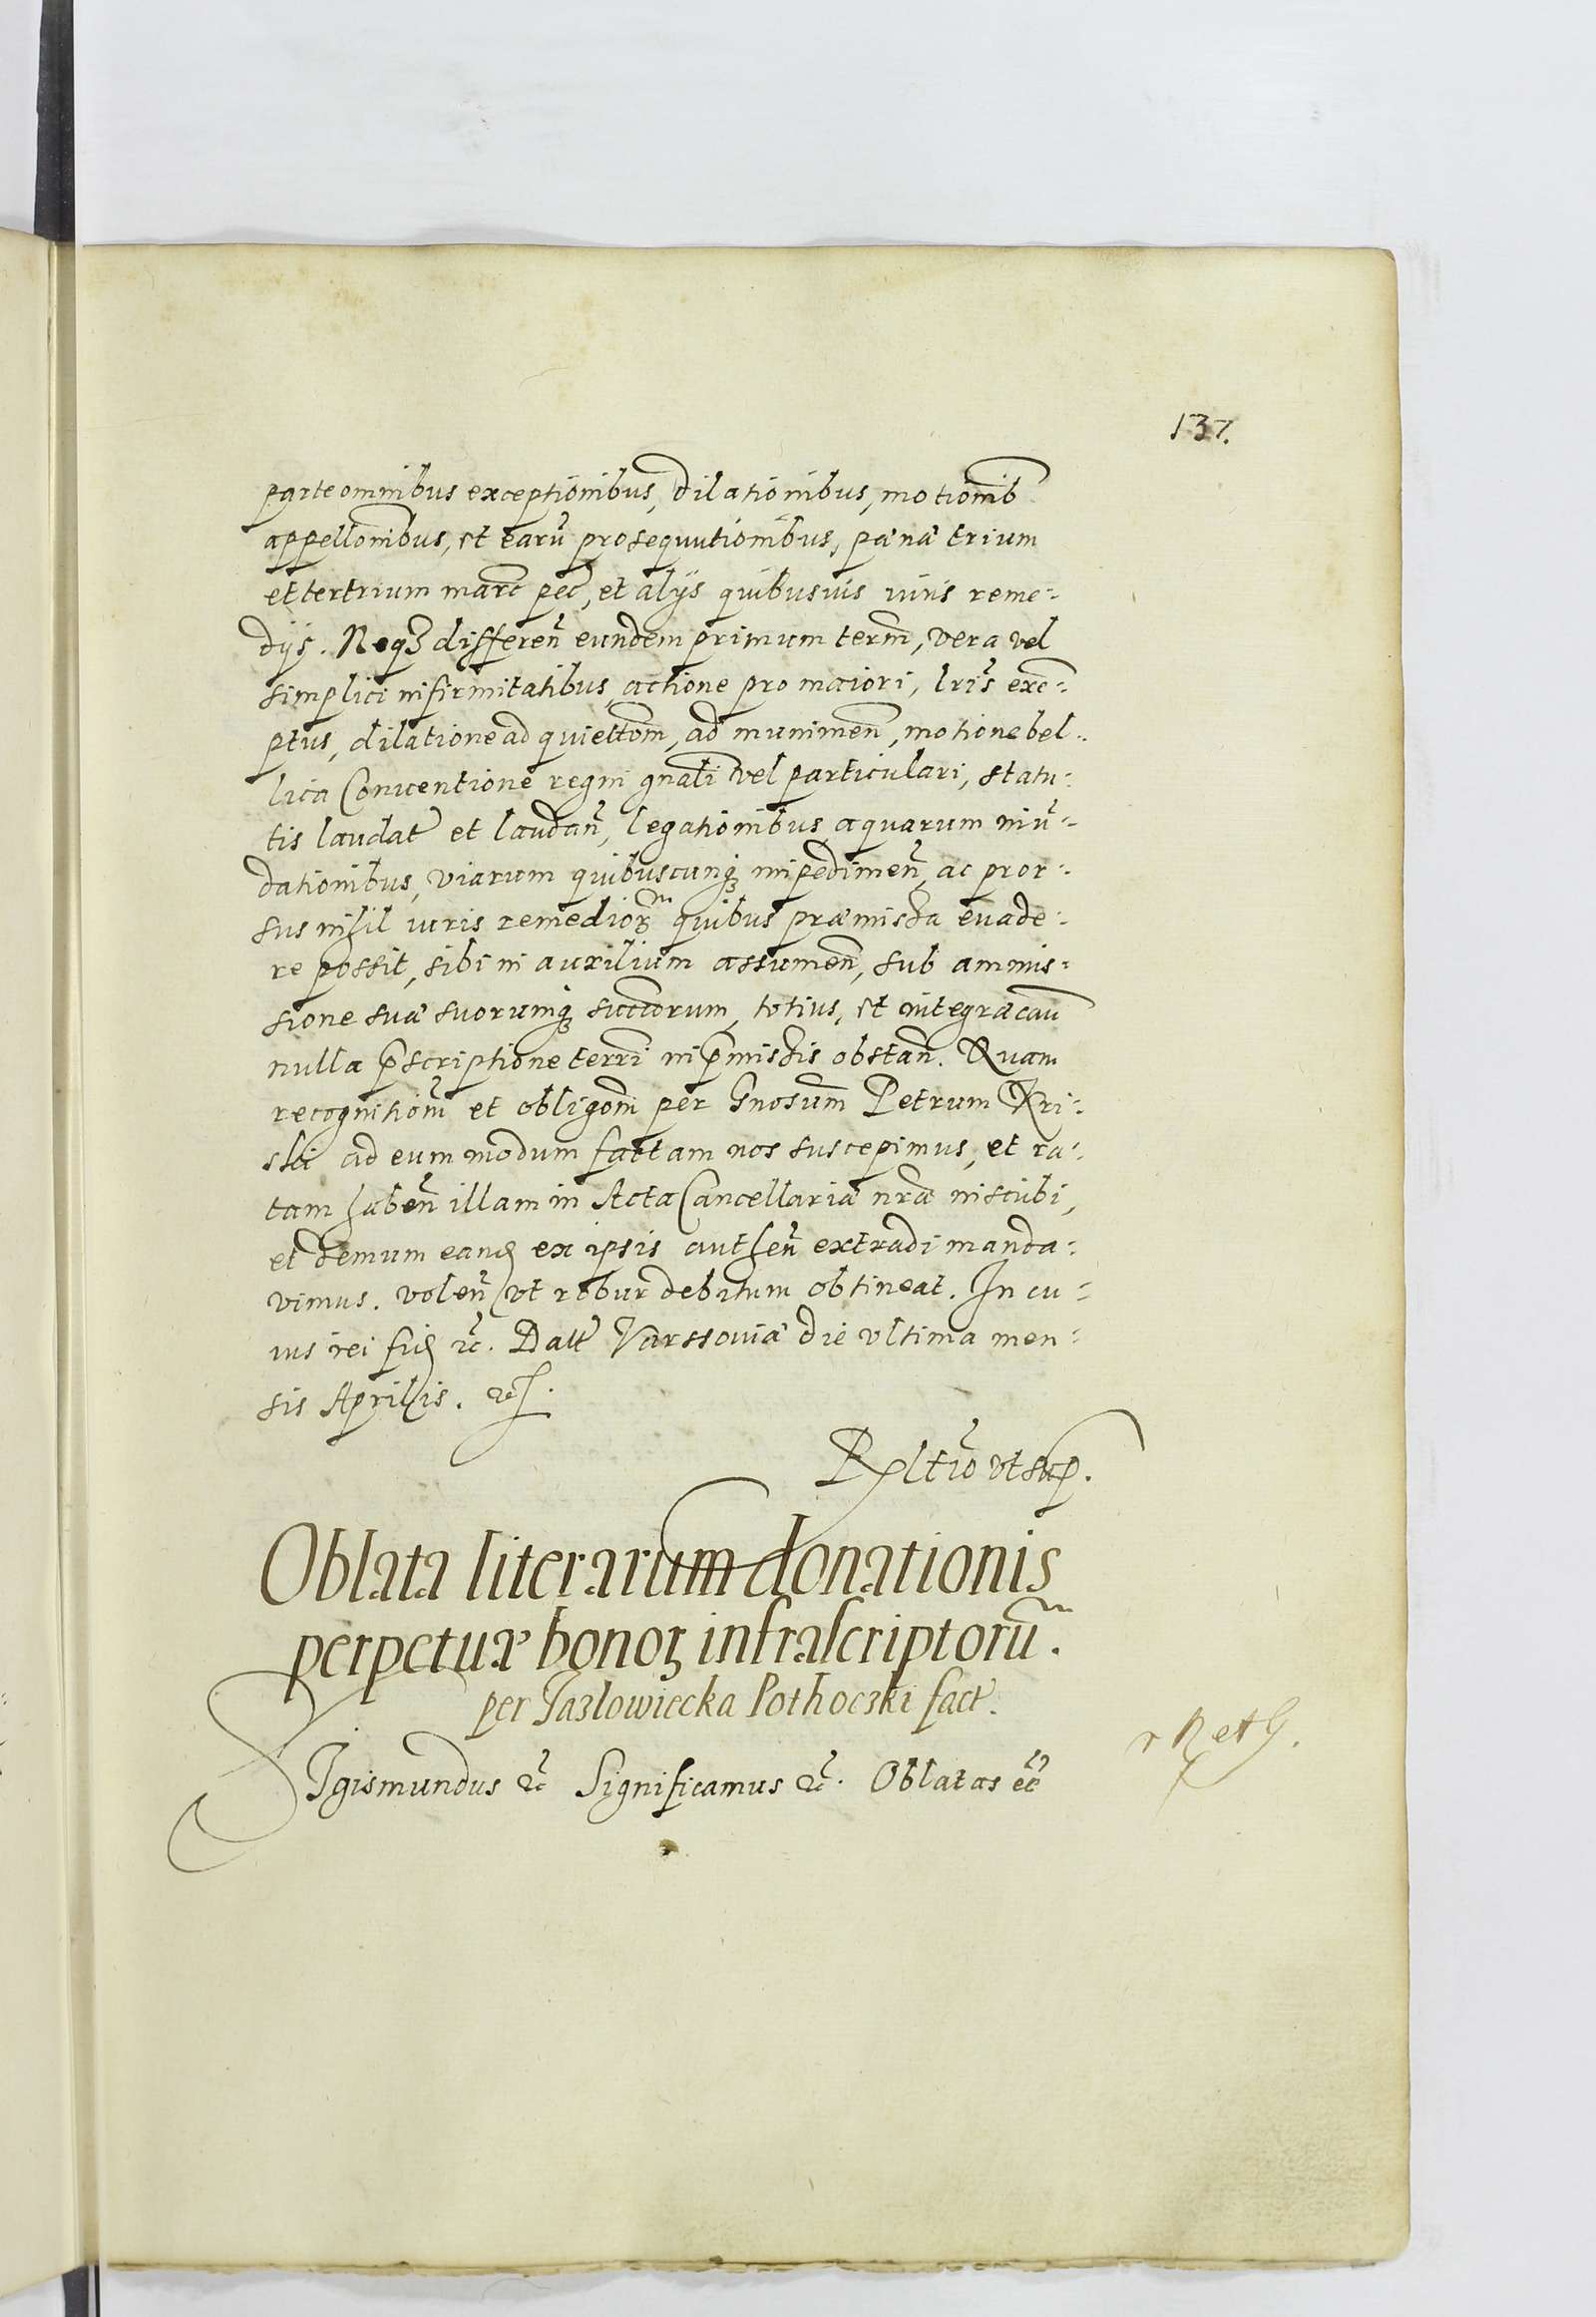 137.
parte omnibus exceptionibus, dilationibus, motionib
appellonibus, et earũ prosequutionibus, pænâ trium
et tertrium marc pec, et alijs quibusuis iuris reme-
dijs. Neqz differeñ eundem primum term, vera vel
simplici infirmitatibus, actione pro maiori, lris exce-
ptus, dilatione ad quiettom, ad munimen, motione bel-
lica Conuentione regni gnali vel particulari, statu-
tis laudat et laudañ, legationibus aquarum inũ-
dationibus, viarum quibuscunqz impedimeñ, ac pror-
sus nihil iuris remedior quibus præmissa euade-
re possit, sibi in auxilium assumeñ, sub ammis-
sione suæ suorumqz succorum, totius, et integræ cau
nulla pscriptione terri in pmissis obstañ. Quam
recognitiom et obligom per Gnosum Petrum Kri-
ski ad eum modum factam nos suscepimus, et ra-
tam habeñ illam in Acta Cancellariæ nræ inscribi,
et demum eand ex ipsis autheñ extradi manda-
vimus. voleñ vt robur debitum obtineat. In cu-
ius rei fid etc. Datt Varssouiæ die vltima men-
sis Aprilis. etc.
Rltio vt sup.
Oblata literarum donationis
perpetuæ bonor infrascriptorũ.
per Jazlowiecka Pothoczki fact.
Sigismundus etc Significamus etc. Oblatas etc